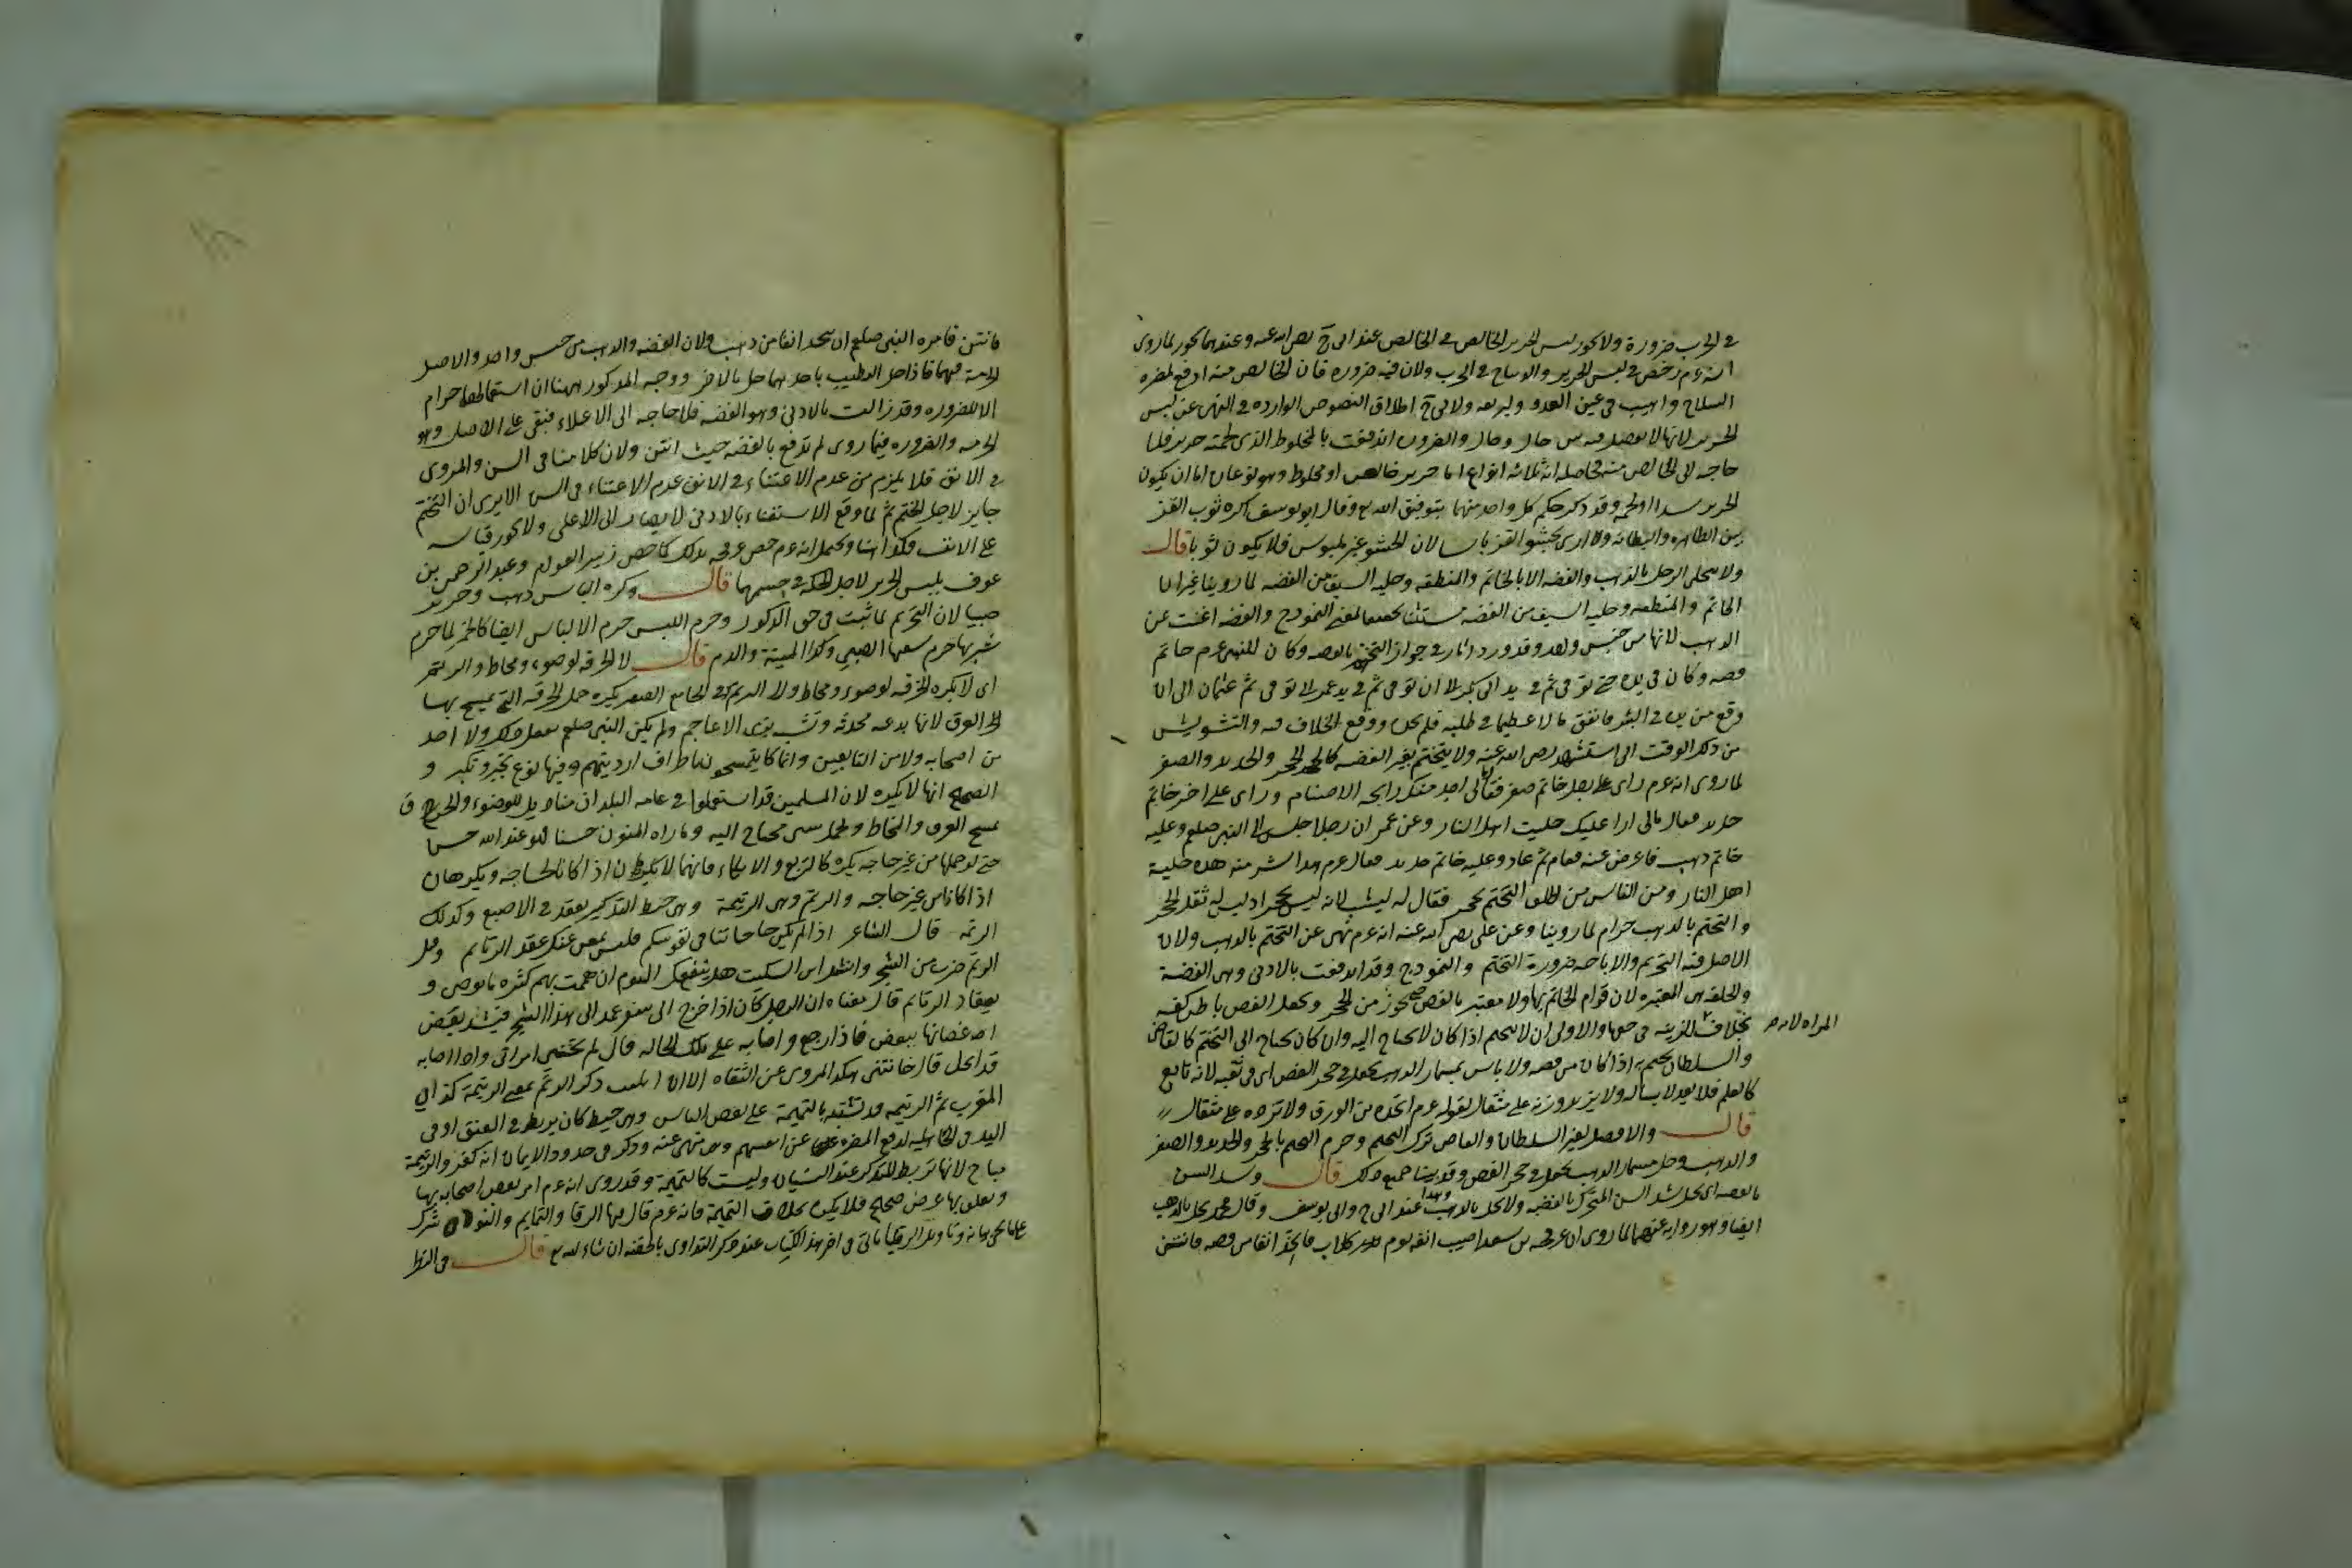 في الحرب ضرورة ولا يجوز لبس الحرير الخالص في الخالص عند ابى ح رضى الله عنه وعندهما يجوز لما روى
انه عم رخص في لبس الحرير والديباج في الحرب ولان فيه ضرورة فان الخالص منه ادفع لمضرة
السلاح واهيب في عين العدو ولابى ح اطلاق النصوص الواردة في النهى عن لبس
الحرير لانها لا تفصل فيه بين حال وحال والضرورة اندفعت بالمخلوط الذى لحمته حرير فلا
حاجة الى الخالص منه فحاصله انه ثلاثة انواع اما حرير خالص او مخلوط وهو نوعان اما ان يكون
الحرير سدا او لحمة وقد ذكر حكم كل واحد منها بتوفيق الله تع وقال ابو يوسف اكره ثوب القز
بين الظاهرة والبطانة ولا ارى بحشو القز باسا لان الحشو غير ملبوس فلا يكون ثوبا قال
ولا يتحلى الرجل بالذهب والفضة الا بالخاتم والمنطقة وحلية السيف من الفضة لما روينا غير ان
الخاتم والمنطقة وحلية السيف من الفضة مستثنا تحقيقا لمعنى النموذج والفضة اغنت عن
الذهب لانها من جنس واحد وقد ورد اثار في جواز التختم بالفضة وكان للنبى عم خاتم
فضة وكان في يده حتى توفى ثم في يد ابى بكر الى ان توفى ثم في يد عمر الى ان توفى ثم عثمان الى ان
وقع من يده في البئر فانفق مالا عظيما في طلبه فلم يجده ووقع الخلاف فيه والتشويش
من ذلك الوقت الى استشهد رضى الله عنه ولا يتختم بغير الفضة كالحجر والحديد والصفر
لما روى انه عم راى على رجل خاتم صفر فقال مالى اجد منك رايحة الاصنام وراى على اخر خاتم
حديد فقال مالى ارا عليك حلية اهل النار وعن عمر ان رجلا جلس الى النبى صلعم وعليه
خاتم ذهب فاعرض عنه فقام ثم عاد وعليه خاتم حديد فقال عم هذا شر منه هذه حلية
اهل النار ومن الناس من اطلق التختم بحجر فقال له يشب لانه ليس بحجر اذ ليس له ثقل الحجر
والتختم بالذهب حرام لما روينا وعن على رضى الله عنه انه عم نهى عن التختم بالذهب ولان
الاصل فيه التحريم والاباحة ضرورة التختم والنموذج وقد اندفعت بالادنى وهى الفضة
والحلقة هى المعتبرة لان قوام الخاتم بها ولا معتبر بالفص حتى يجوز من الحجر ويجعل الفص باطن كفه
بخلاف المراة لانه للزينة في حقها والاولى ان لا يتختم اذا كان لا يحتاج اليه وان كان يحتاج الى التختم كالقاضى
والسلطان يتختم به اذا كان من فضة ولا باس بمسمار الذهب يجعل في حجر الفص اى في ثقبه لانه تابع
كالعلم فلا يعد لابسا له ولا يزيد وزنه على مثقال لقوله عم اتخذه من الورق ولا تزده على مثقال
قال والافضل لغير السلطان والقاضى ترك التختم وحرم التختم بالحجر والحديد والصفر
والذهب وحل مسمار الذهب يجعل في حجر الفص وقد بينا جميع ذلك قال وشد السن
بالفضة اى يحل شد السن المتحرك بالفضة ولا يحل بالذهب وهذا عند ابى ح وابى يوسف وقال محمد يحل بالذهب
ايضا وهو رواية عنهما لما روى ان عرفجة بن سعد اصيب انفه يوم كلاب فاتخذ انفا من فضة فانتن
فانتن فامره النبى صلعم ان يتخذ انفا من ذهب ولان الفضة والذهب من جنس واحد والاصل
الحرمة فيهما فاذا حل التضبيب باحدهما حل بالاخر ووجه المذكور ههنا ان استعمالهما حرام
الا للضرورة وقد زالت بالادنى وهو الفضة فلا حاجة الى الاعلاء فبقى على الاصل وهو
الحرمة والضرورة فيما روى لم تدفع بالفضة حيث انتن ولان كلامنا في السن والمروى
في الانف فلا يلزم من عدم الاغتناء في الانف عدم الاغتناء في السن الا يرى ان التختم
جايز لاجل الختم ثم لما وقع الاستغناء بالادنى لا يصار الى الاعلى ولا يجوز قياسه
على الانف فكذا هنا ويحتمل انه عم خص عرفجة بذلك كما خص زبير العوام وعبد الرحمن بن
عوف بلبس الحرير لاجل الحكة في جسمهما قال وكره الباس ذهب وحرير
صبيا لان التحريم لما ثبت في حق الذكور وحرم اللبس حرم الالباس ايضا كالخمر لما حرم
شربها حرم سقيها الصبى وكذا الميتة والدم قال لا الخرقة لوضوء ومخاط والرتم
اى لا يكره الخرقة لوضوء ومخاط ولا الرتم وفى الجامع الصغير يكره حمل الخرقة التى يمسح بها
العرق لانها بدعة محدثة وتشبه بزى الاعاجم ولم يكن النبى صلعم يفعل ذلك ولا احد
من اصحابه ولا من التابعين وانما كانوا يتمسحون باطراف ارديتهم وفيها نوع تجبر وتكبر و
الصحيح انها لا يكره لان المسلمين قد استعملوا في عامة البلدان مناديل للوضوء والخرق
لمسح العرق والمخاط ولحمل شى يحتاج اليه وما راه المؤمنون حسنا فهو عند الله حسن
حتى لو حملها من غير حاجة يكره كالتربع والاتكاء فانهما لا يكرهان اذا كانا لحاجة ويكرهان
اذا كانا من غير حاجة والرتم وهى الرتيمة وهى خيط التذكير يعقد في الاصبع وكذلك
الرتمة قال الشاعر اذا لم يكن حاجاتنا في نفوسكم فليس بمغن عنك عقد الرتايم وقيل
الرتم ضرب من الشجر وانشد ابن السكيت هل ينفعك اليوم ان همت بهم كثرة ما توصى و
تعقاد الرتايم قال معناه ان الرجل كان اذا خرج الى سفر عمد الى هذا الشجر فيشد بعض
اغصانها ببعض فاذا رجع واصابه على تلك الحالة قال لم تخنى امراتى واذا اصابه
قد انحل قال خانتنى هكذا المروى عن الثقاة الا ان الليث ذكر الرتم بمعنى الرتيمة كذا في
المغرب ثم الرتيمة قد تشتبه بالتميمة على بعض الناس وهى خيط كان يربط في العنق او في
اليد في الجاهلية لدفع المضرة عن انفسهم وهو منهى عنه وذكر في حدود الايمان انه كفر والرتيمة
مباح لانها تربط للتذكر عند النسيان وليست كالتميمة وقد روى انه عم امر بعض اصحابه بها
وتعلق بها غرض صحيح فلا يكره بخلاف التميمة فانه عم قال فيها الرقا والتمايم والتولة شرك
على ما يجى بيانه وتاويل الرقيا ياتى في اخر هذا الكتاب عند ذكر التداوى بالحقنة ان شاء الله تع قال في النظر